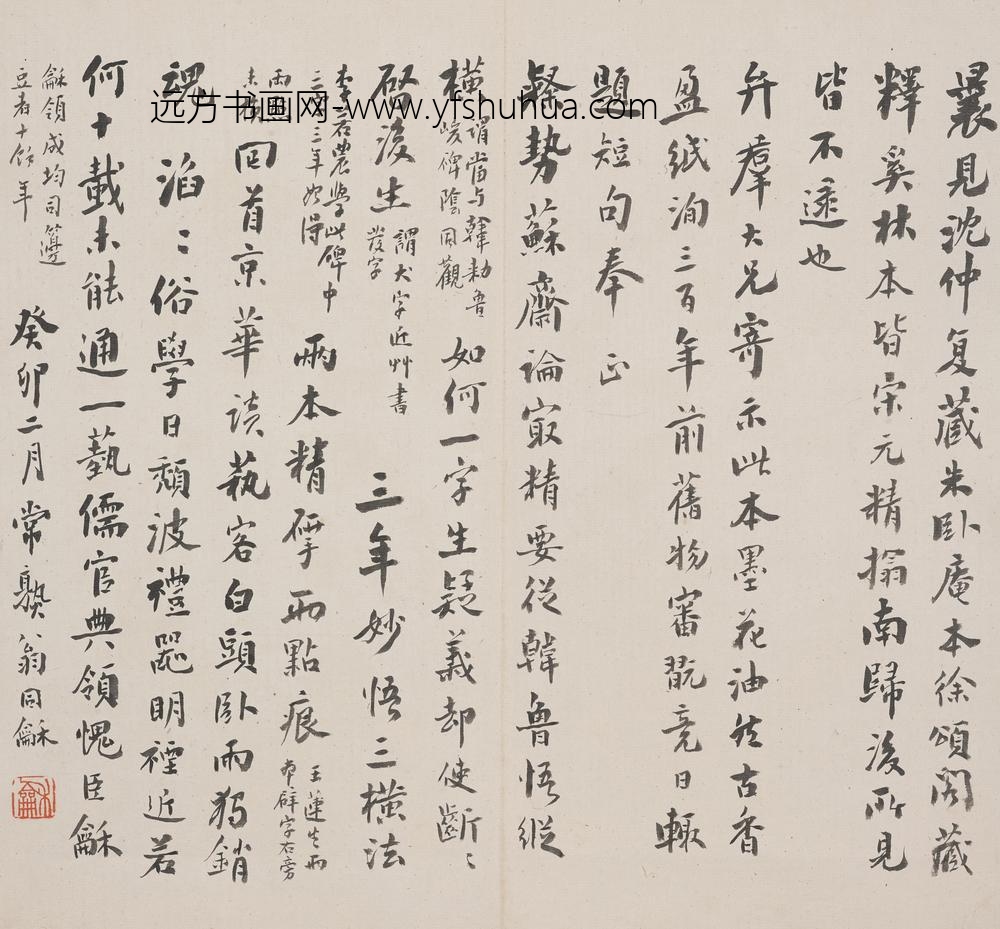 曩見沈仲复藏朱臥庵本徐頌閣藏
釋奚林本皆宋元精搨南歸後所見
皆不逮也
弁羣大兄寄示此本墨花油然古香
盈紙洵三百年前舊物審翫竟日輙
題短句奉 正
隸勢蘇齋論寂精要從韓魯悟縱
橫 謂當与韓勑魯
峻碑陰同觀 如何一字生疑義却使齗〻
啟後生 謂犬字近艸書
發字 三年妙悟三橫法
李若農學此碑中
三年始得
兩本精摩兩點痕 王蓮生兩
本辟字右旁
兩
未損 回首京華談執客白頭臥雨獨銷
魂 滔〻俗學日頹波禮器明禋近若
何十載未能通一藝儒官典領愧臣龢
龢領成均司籩
豆者十餘年
癸卯二月常熟翁同龢
远方书画网-www.yfshuhua.com